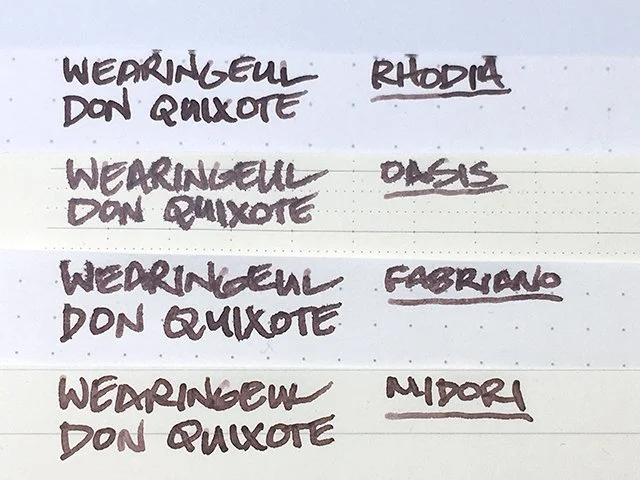 WEARINGEUL RHODIA
DON QUIXOTE
WEARINGEUL OASIS
DON QUIXOTE
WEARINGEUL FABRIANO
DON QUIXOTE
WEARINGEUL MIDORI
DON QUIXOTE